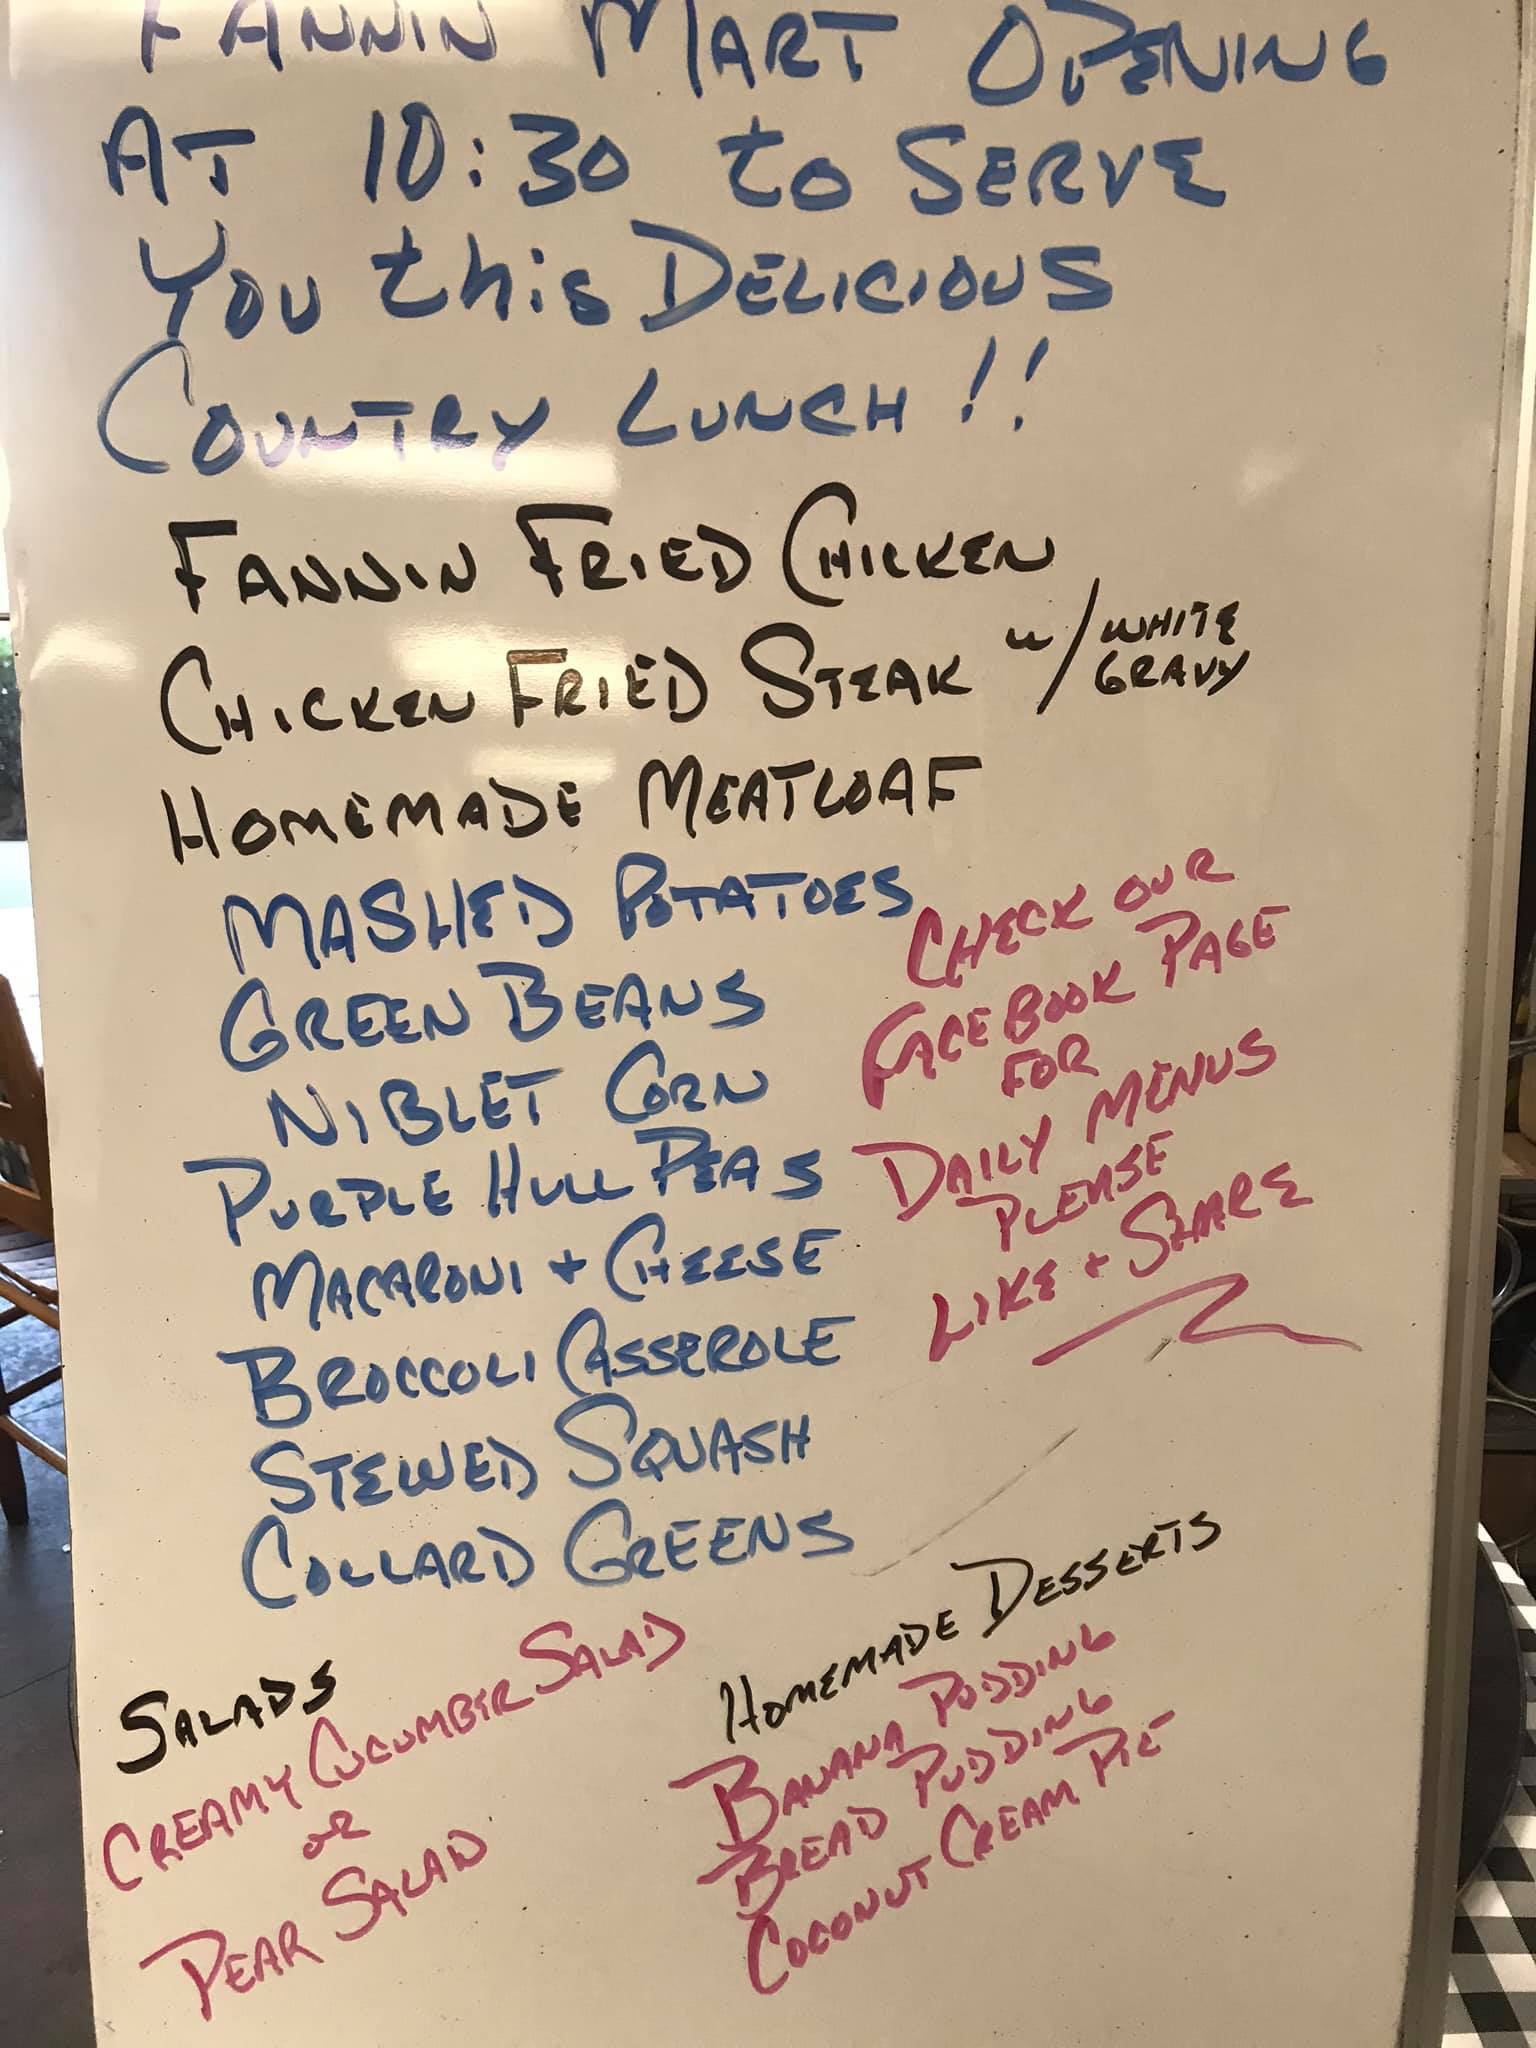 FANNIN MART OPENING
AT 10:30 to SERVE
YOU this DELICIOUS
COUNTRY LUNCH!!
FANNIN FRIED CHICKEN
CHICKEN FRIED STEAK w/ WHITE GRAVY
HOMEMADE MEATLOAF
MASHED POTATOES
GREEN BEANS
NIBLET CORN
PURPLE HULL PEAS
MACARONI + CHEESE
BROCCOLI CASSEROLE
STEWED SQUASH
COLLARD GREENS
CHECK OUR
FACEBOOK PAGE
FOR
DAILY MENUS
PLEASE
LIKE + SHARE
SALADS
CREAMY CUCUMBER SALAD
OR
PEAR SALAD
HOMEMADE DESSERTS
BANANA PUDDING
BREAD PUDDING
COCONUT CREAM PIE